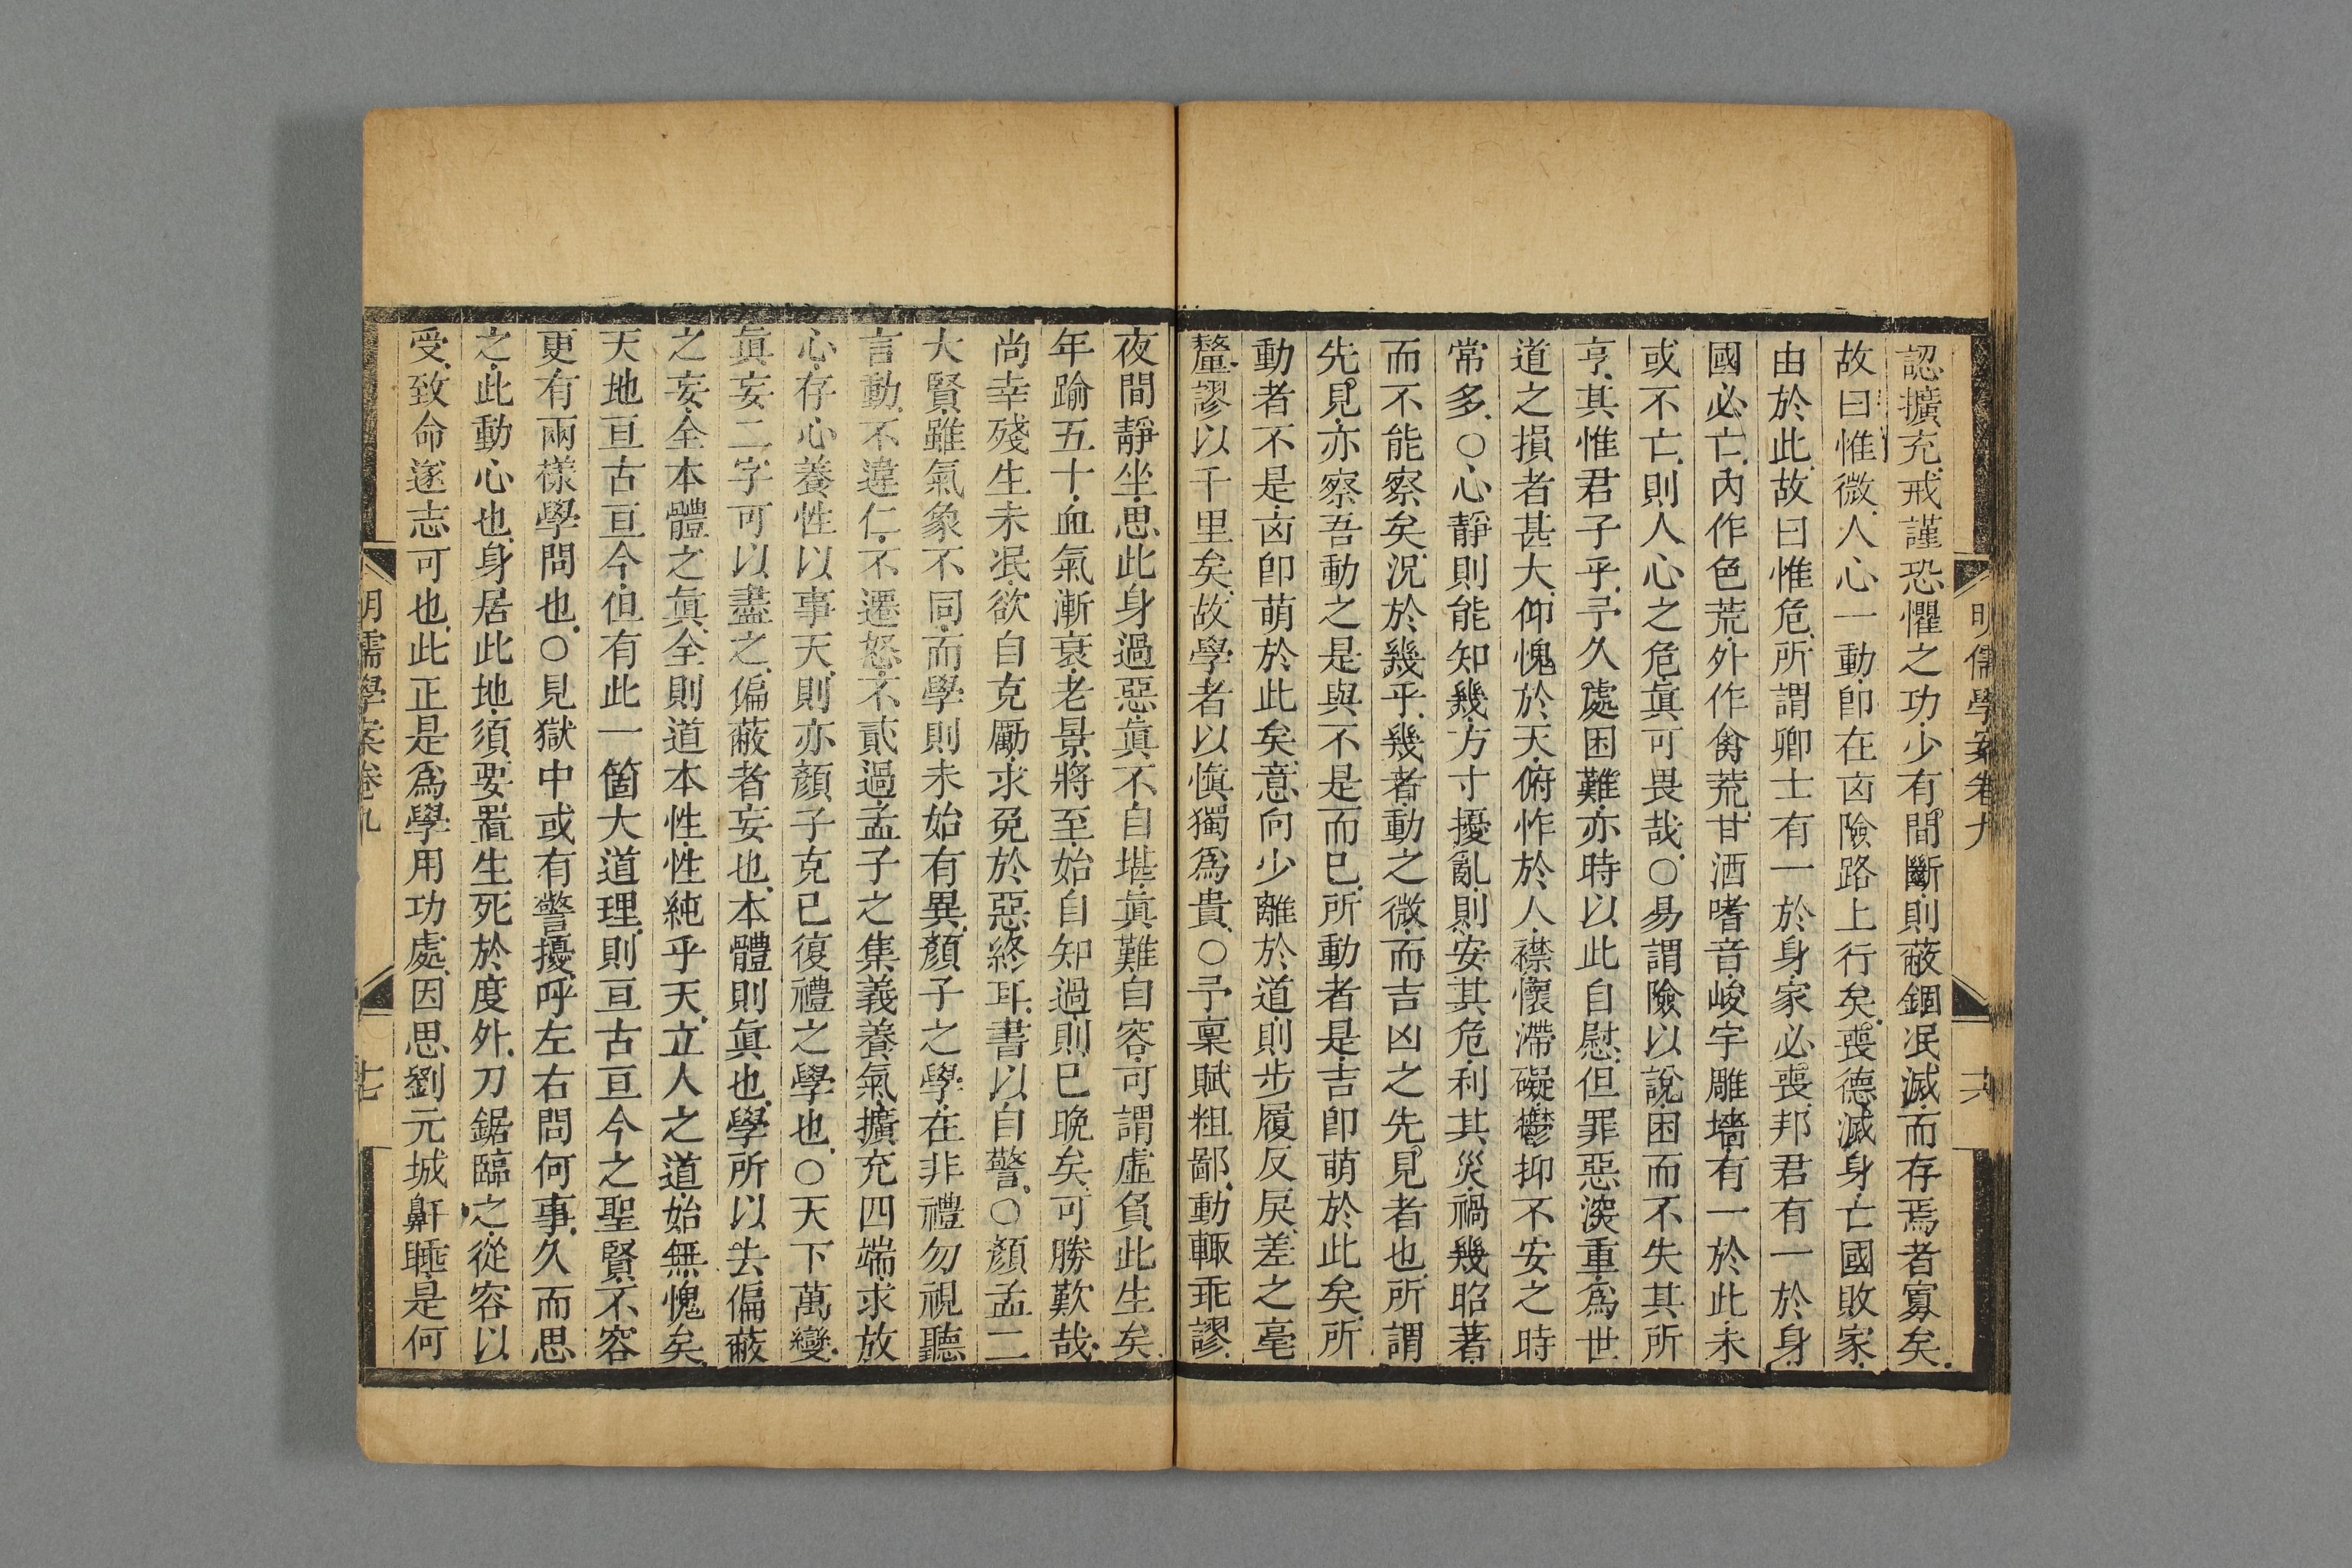 明儒學案卷九 十六
認擴充戒謹恐懼之功少有間斷則蔽錮泯滅而存焉者寡矣
故曰惟微人心一動卽在凶險路上行矣喪德滅身亡國敗家
由於此故曰惟危所謂卿士有一於身家必喪邦君有一於身
國必亡內作色荒外作禽荒甘酒嗜音峻宇雕墻有一於此未
或不亡則人心之危眞可畏哉○易謂險以說困而不失其所
亨其惟君子乎予久處困難亦時以此自慰但罪惡深重爲世
道之損者甚大仰愧於天俯怍於人襟懷滯礙鬱抑不安之時
常多○心靜則能知幾方寸擾亂則安其危利其災禍幾昭著
而不能察矣況於幾乎幾者動之微而吉凶之先見者也所謂
先見亦察吾動之是與不是而已所動者是吉卽萌於此矣所
動者不是凶卽萌於此矣意向少離於道則步履反戾差之毫
釐謬以千里矣故學者以愼獨爲貴○予稟賦粗鄙動輒乖謬
夜間靜坐思此身過惡眞不自堪眞難自容可謂虛負此生矣
年踰五十血氣漸衰老景將至始自知過則已晚矣可勝歎哉
尚幸殘生未泯欲自克勵求免於惡終耳書以自警○顏孟二
大賢雖氣象不同而學則未始有異顏子之學在非禮勿視聽
言動不違仁不遷怒不貳過孟子之集義養氣擴充四端求放
心存心養性以事天則亦顏子克己復禮之學也○天下萬變
眞妄二字可以盡之偏蔽者妄也本體則眞也學所以去偏蔽
之妄全本體之眞全則道本性性純乎天立人之道始無愧矣
天地亘古亘今但有此一箇大道理則亘古亘今之聖賢不容
更有兩樣學問也○見獄中或有警擾呼左右問何事久而思
之此動心也身居此地須要置生死於度外刀鋸臨之從容以
受致命遂志可也此正是爲學用功處因思劉元城鼾睡是何
明儒學案卷九 十七